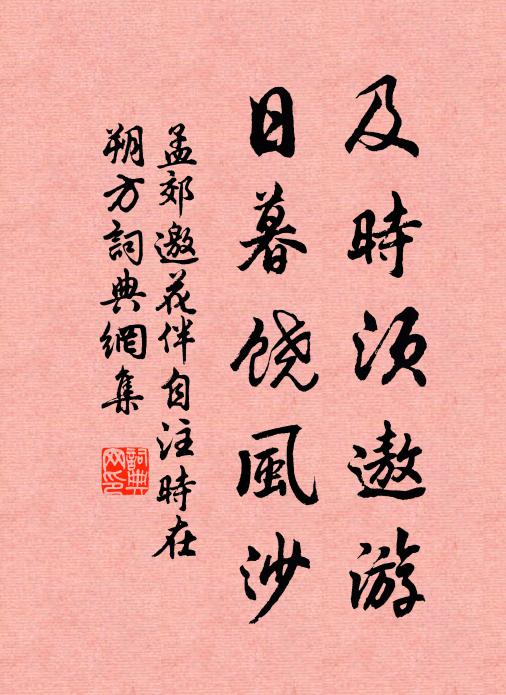 及時须遨游
日暮饶風沙
孟郊邀花伴自注時在
朔方詞典網集
詞典
网印